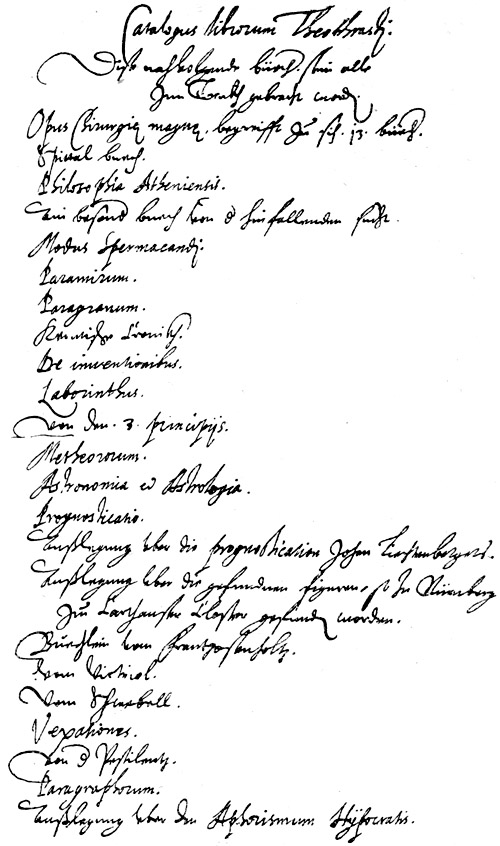 Catalogus librorum Theophrasti.
Diese nachvolgende büech. sein alle
Inn Truckh gebracht word.
Opus Chirurgiæ magnæ. begreifft Zu sich. 13. büech.
Spittal buech.
Philosophia Atheniensis.
Ein besond buech von d hinfallenden sucht.
Modus Spermacandi.
Paramirum.
Paragranum.
Cronick.
De inventionibus.
Laborinthus.
Von den. 3. principijs.
Metheororum.
Astronomia et Astrologia.
Prognosticatio.
Außlegung vber die prognostication Johan Liechtenbergers.
Außlegung vber die gefundnen figuren, so Zu Nürnberg
Zu Carthauser Closter gefund worden.
Büechlein vom Frantzosenholtz.
Vom Victriol.
Vom Schwebell.
Vexationes.
Von d Pestilentz.
Paragraphorum.
Außlegung vber den Aphorismum Hypocratis.